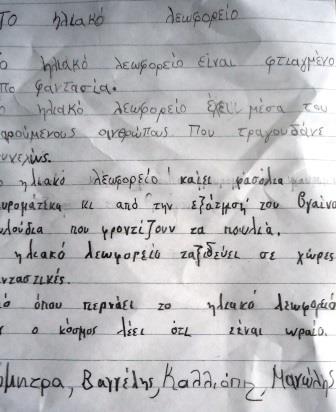 ΤΟ ηλιακό λεωφορείο
ο ηλιακό λεωφορείο είναι φτιαγμένο
πο φαντασία.
ο ηλιακό λεωφορείο έχει μέσα του
αρούμενους ανθρώπους που τραγουδάνε
υνεχώς.
ο ηλιακό λεωφορείο καίει φασόλια
υρωματικά κι από την εξάτμιση του βγαίνο
υλούδια που φροντίζουν τα πουλιά.
ηλιακό λεωφορείο ταξιδεύει σε χώρες
νταστικές.
ό όπου περνάει το ηλιακό λεωφορείο
ς ο κόσμος λέει ότι είναι ωραίο.
όμητρα, Βαγγέλης, Καλλιόπη, Μανώλης